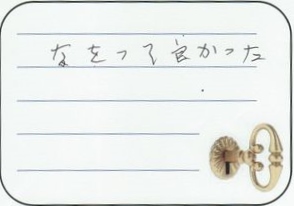 なをって良かった